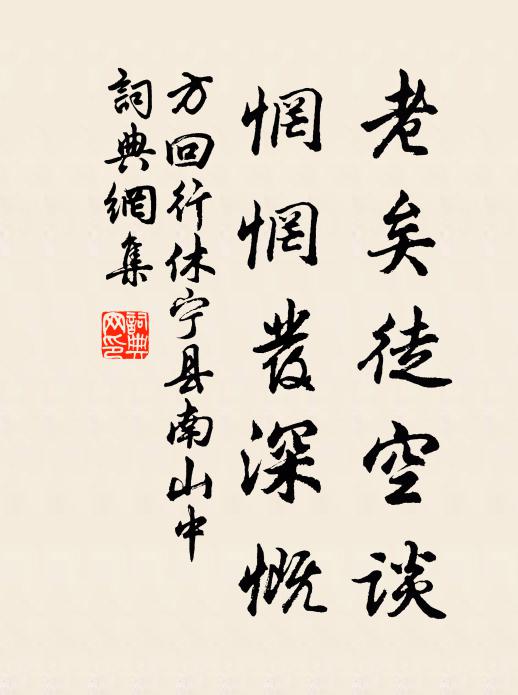 老矣徒空谈
惘惘发深慨
方回行休宁县南山中
詞典網集
詞典网印